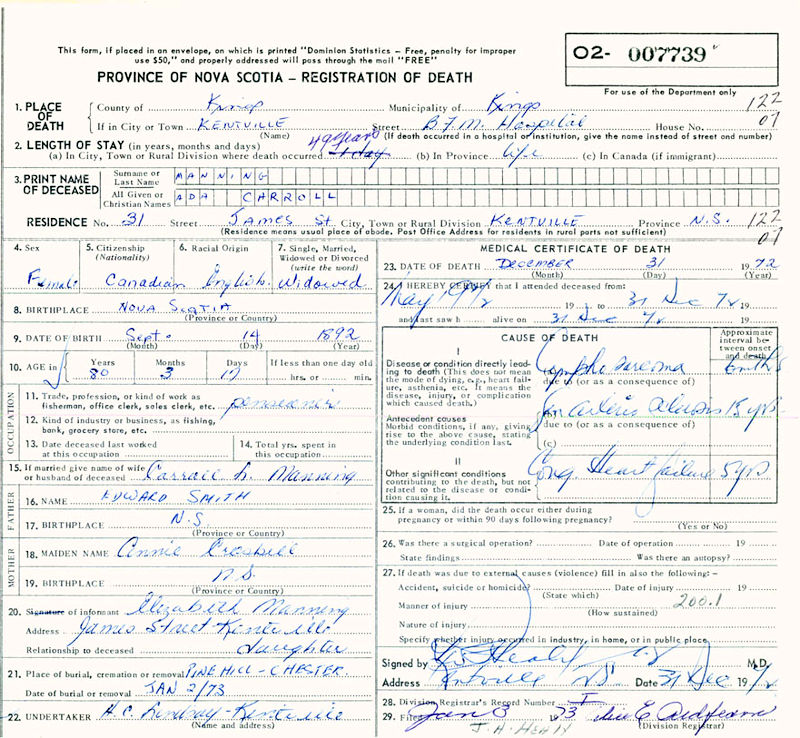 This form, if placed in an envelope, on which is printed "Dominion Statistics – Free, penalty for improper
use $50," and properly addressed will pass through the mail "FREE"
02- 007739
For use of the Department only
PROVINCE OF NOVA SCOTIA – REGISTRATION OF DEATH
1. PLACE OF DEATH
County of Kings Municipality of Kings 122
If in City or Town KENTVILLE Street B.F.M. Hospital House No. 07
(Name) (If death occurred in a hospital or institution, give the name instead of street and number)
2. LENGTH OF STAY (in years, months and days) 49 years
(a) In City, Town or Rural Division where death occurred 1 day (b) In Province life (c) In Canada (if immigrant)
3. PRINT NAME OF DECEASED
Surname or Last Name MANNING
All Given or Christian Names ADA CARROLL
RESIDENCE No. 31 Street James St. City, Town or Rural Division KENTVILLE Province N.S. 122
(Residence means usual place of abode. Post Office Address for residents in rural parts not sufficient) 07
4. Sex Female
5. Citizenship (Nationality) Canadian
6. Racial Origin English
7. Single, Married, Widowed or Divorced (write the word) Widowed
8. BIRTHPLACE NOVA SCOTIA
(Province or Country)
9. DATE OF BIRTH Sept. 14 1892
(Month) (Day) (Year)
10. AGE in Years 80 Months 3 Days 17 If less than one day old
hrs. or min.
OCCUPATION
11. Trade, profession, or kind of work as
fisherman, office clerk, sales clerk, etc. pensioner
12. Kind of industry or business, as fishing,
bank, grocery store, etc.
13. Date deceased last worked
at this occupation
14. Total yrs. spent in
this occupation
15. If married give name of wife
or husband of deceased Carroll L. Manning
FATHER
16. NAME EDWARD SMITH
17. BIRTHPLACE N.S.
(Province or Country)
MOTHER
18. MAIDEN NAME Annie
19. BIRTHPLACE N.S.
(Province or Country)
20. Signature of informant Elizabeth Manning
Address James Street Kentville
Relationship to deceased daughter
21. Place of burial, cremation or removal PINE HILL - CHESTER
Date of burial or removal JAN 2/73
22. UNDERTAKER H.C. Lindsay - Kentville
(Name and address)
MEDICAL CERTIFICATE OF DEATH
23. DATE OF DEATH DECEMBER 31 1972
(Month) (Day) (Year)
24. I HEREBY CERTIFY that I attended deceased from:
May 1972 19 to 31 Dec 72 19
and last saw h alive on 31 Dec 72 19
CAUSE OF DEATH
Approximate interval between onset and death
I
Disease or condition directly lead-
ing to death (This does not mean
the mode of dying, e.g., heart fail-
ure, asthenia, etc. It means the
disease, injury, or complication
which caused death.)
Lympho sarcoma months
due to (or as a consequence of)
15 yrs
Antecedent causes
Morbid conditions, if any, giving
rise to the above cause, stating
the underlying condition last.
due to (or as a consequence of)
(c)
II
Other significant conditions
contributing to the death, but not
related to the disease or condi-
tion causing it.
Cong. Heart failure 5 yrs
25. If a woman, did the death occur either during
pregnancy or within 90 days following pregnancy?
(Yes or No)
26. Was there a surgical operation? Date of operation 19
State findings Was there an autopsy?
27. If death was due to external causes (violence) fill in also the following:–
Accident, suicide or homicide? Date of injury 19
(State which)
Manner of injury 200.1
(How sustained)
Nature of injury
Specify whether injury occurred in industry, in home, or in public place
Signed by M.D.
Address Kentville NS Date 31 Dec 1972
28. Division Registrar's Record Number I
29. Filed Jan 3 1973
J. A. HEALY (Division Registrar)